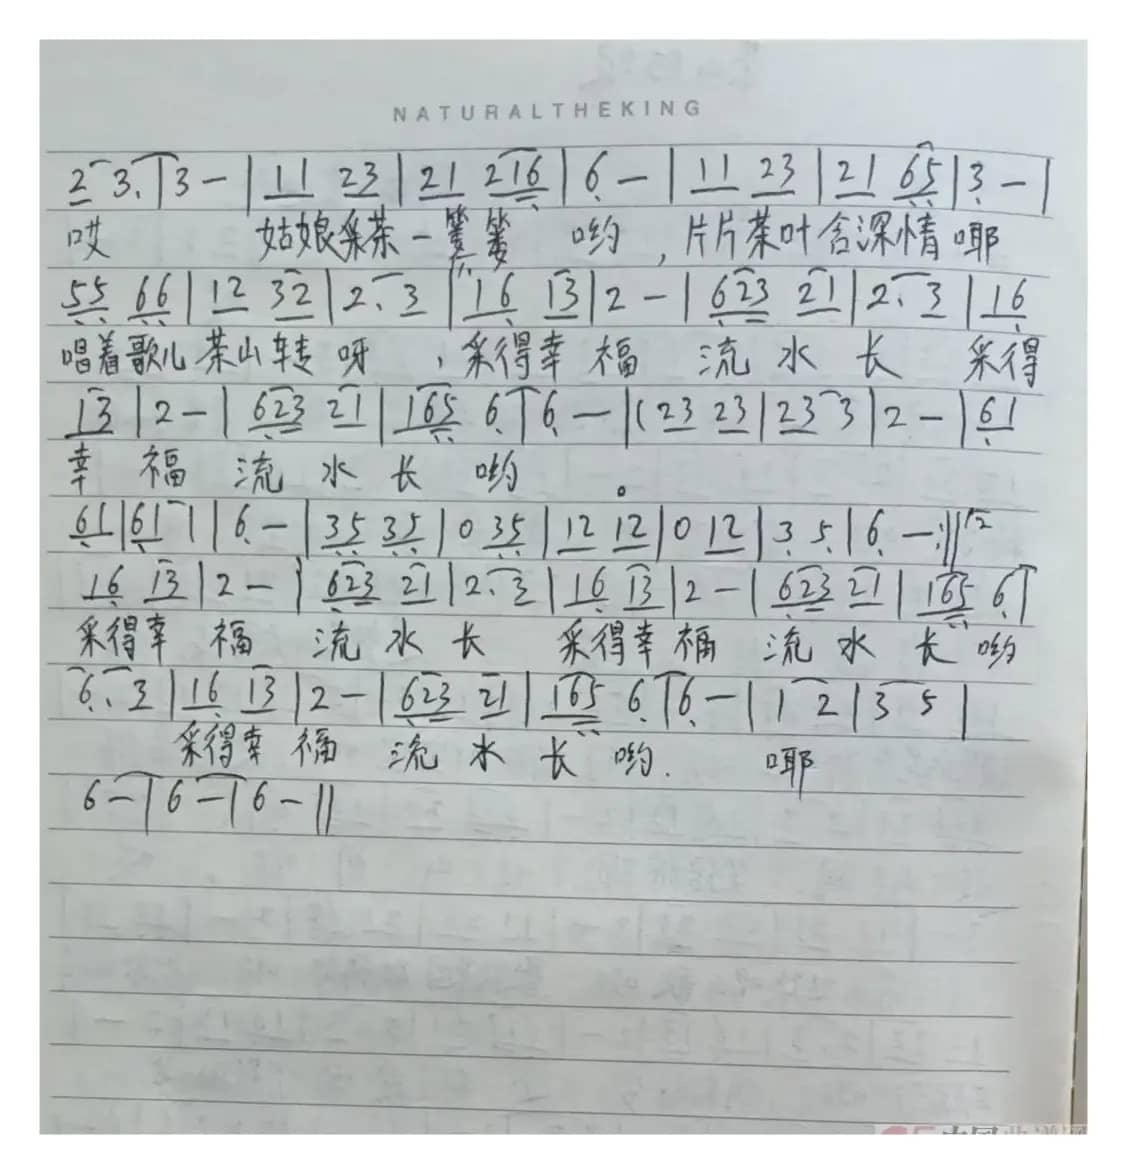 NATURALTHEKING
2 3. | 3 - | 11 23 | 21 216 | 6 - | 11 23 | 21 65 | 3 - |
哎 姑娘采茶一篓篓 哟 , 片片茶叶含深情 哪
55 66 | 12 32 | 2. 3 | 16 13 | 2 - | 623 21 | 2. 3 | 16
唱着歌儿 茶山转 呀 , 采得幸 福 流 水 长 采得
13 | 2 - | 623 21 | 165 6 | 6 - | (23 23 | 23 3 | 2 - | 61
幸 福 流 水 长 哟 。
61 | 61 1 | 6 - | 35 35 | 0 35 | 12 12 | 0 12 | 3 5 | 6 - :|| 12
16 13 | 2 - | 623 21 | 2. 3 | 16 13 | 2 - | 623 21 | 165 6 |
采得幸 福 流 水 长 采得幸 福 流 水 长 哟
6. 3 | 16 13 | 2 - | 623 21 | 165 6 | 6 - | 1 2 | 3 5 |
采得幸 福 流 水 长 哟. 哪
6 - | 6 - | 6 - ||